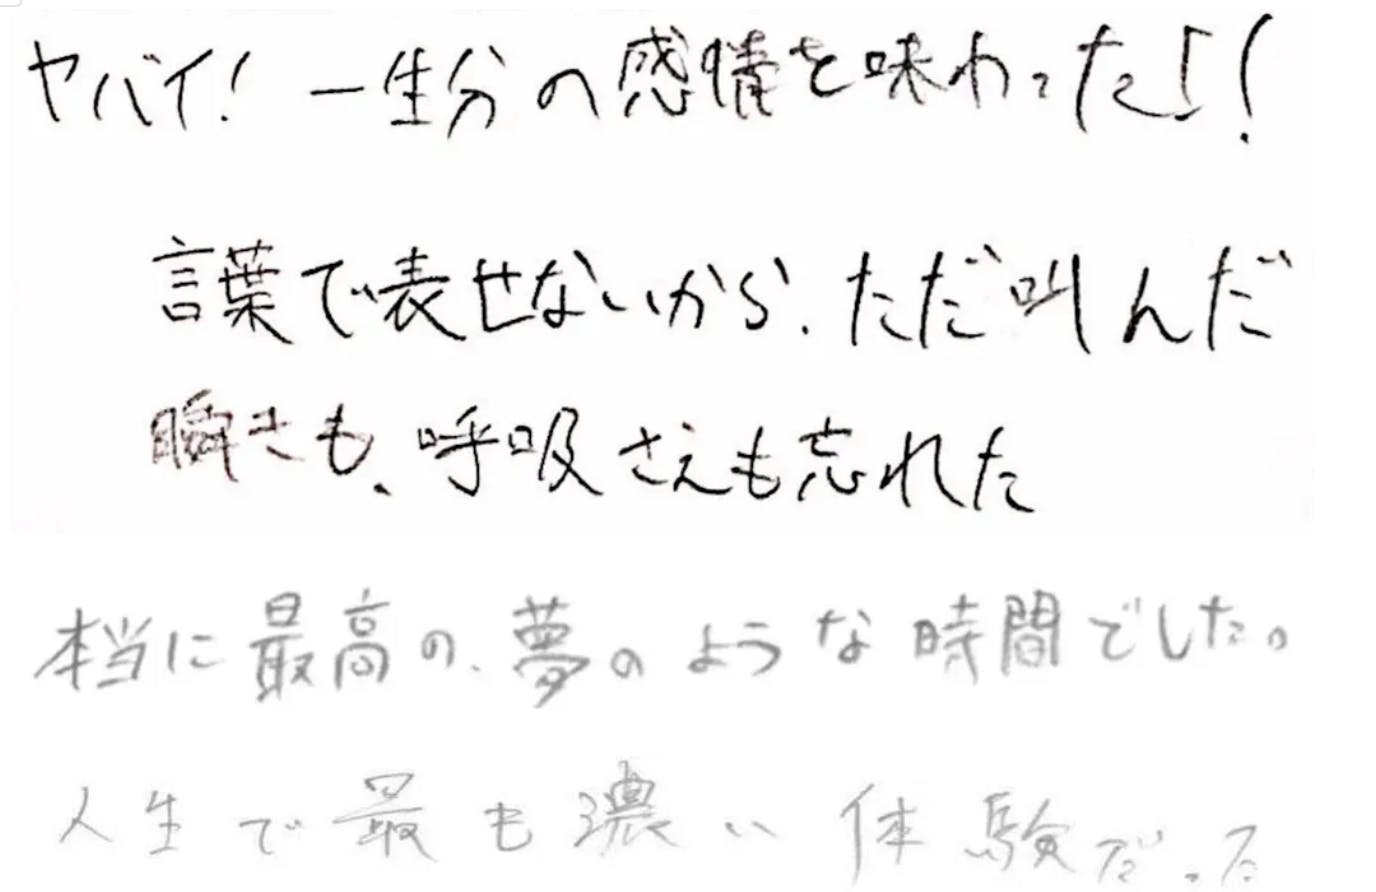 ヤバイ! 一生分の感情を味わった!!
言葉で表せないから、ただ叫んだ
瞬きも、呼吸さえも忘れた
本当に最高の、夢のような時間でした。
人生で最も濃い体験だった